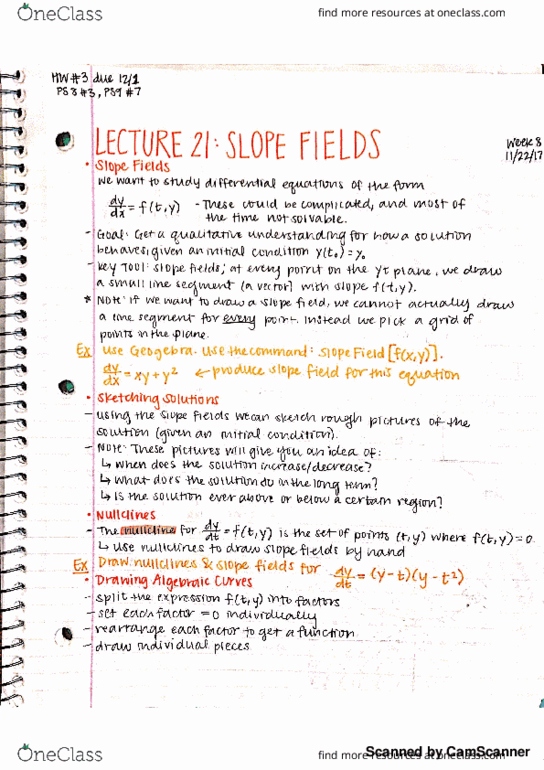 OneClass
find more resources at oneclass.com
HW #3 due 12/1
PS 8 #3, PS9 #7
LECTURE 21: SLOPE FIELDS
Week 8
11/22/17
• Slope Fields
We want to study differential equations of the form
dy/dx = f(t,y) - These could be complicated, and most of
the time not solvable.
- Goal: Get a qualitative understanding for how a solution
behaves, given an initial condition y(t₀) = y₀
- Key Tool: slope fields; at every point on the yt plane, we draw
a small line segment (a vector) with slope f(t,y).
* Note: if we want to draw a slope field, we cannot actually draw
a line segment for every point. Instead we pick a grid of
points in the plane.
Ex Use Geogebra. Use the command: SlopeField [f(x,y)].
dy/dx = xy + y² ← produce slope field for this equation
• Sketching Solutions
- Using the slope fields we can sketch rough pictures of the
solution (given an initial condition).
- Note: These pictures will give you an idea of:
↳ When does the solution increase/decrease?
↳ What does the solution do in the long term?
↳ Is the solution ever above or below a certain region?
• Nullclines
- The nullcline for dy/dt = f(t,y) is the set of points (t,y) where f(t,y) = 0.
↳ Use nullclines to draw slope fields by hand
Ex Draw nullclines & slope fields for dy/dt = (y-t)(y-t²)
• Drawing Algebraic Curves
- split the expression f(t,y) into factors
- set each factor = 0 individually
- rearrange each factor to get a function
- draw individual pieces
OneClass
find more resources at oneclass.com
Scanned by CamScanner